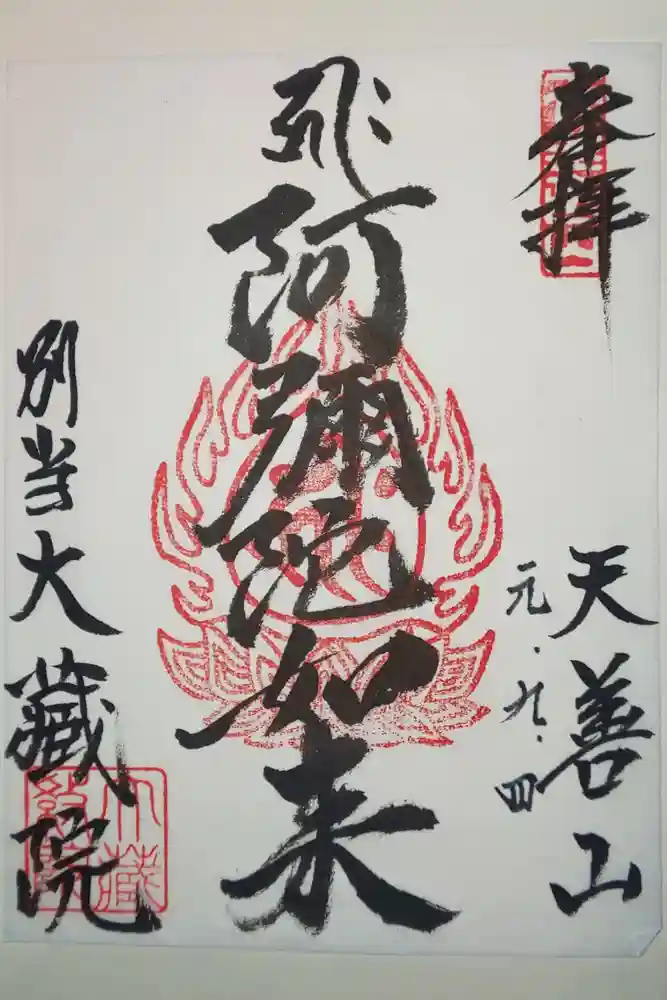 奉拝
天善山
元・九・四
阿彌陀如来
別当大藏院